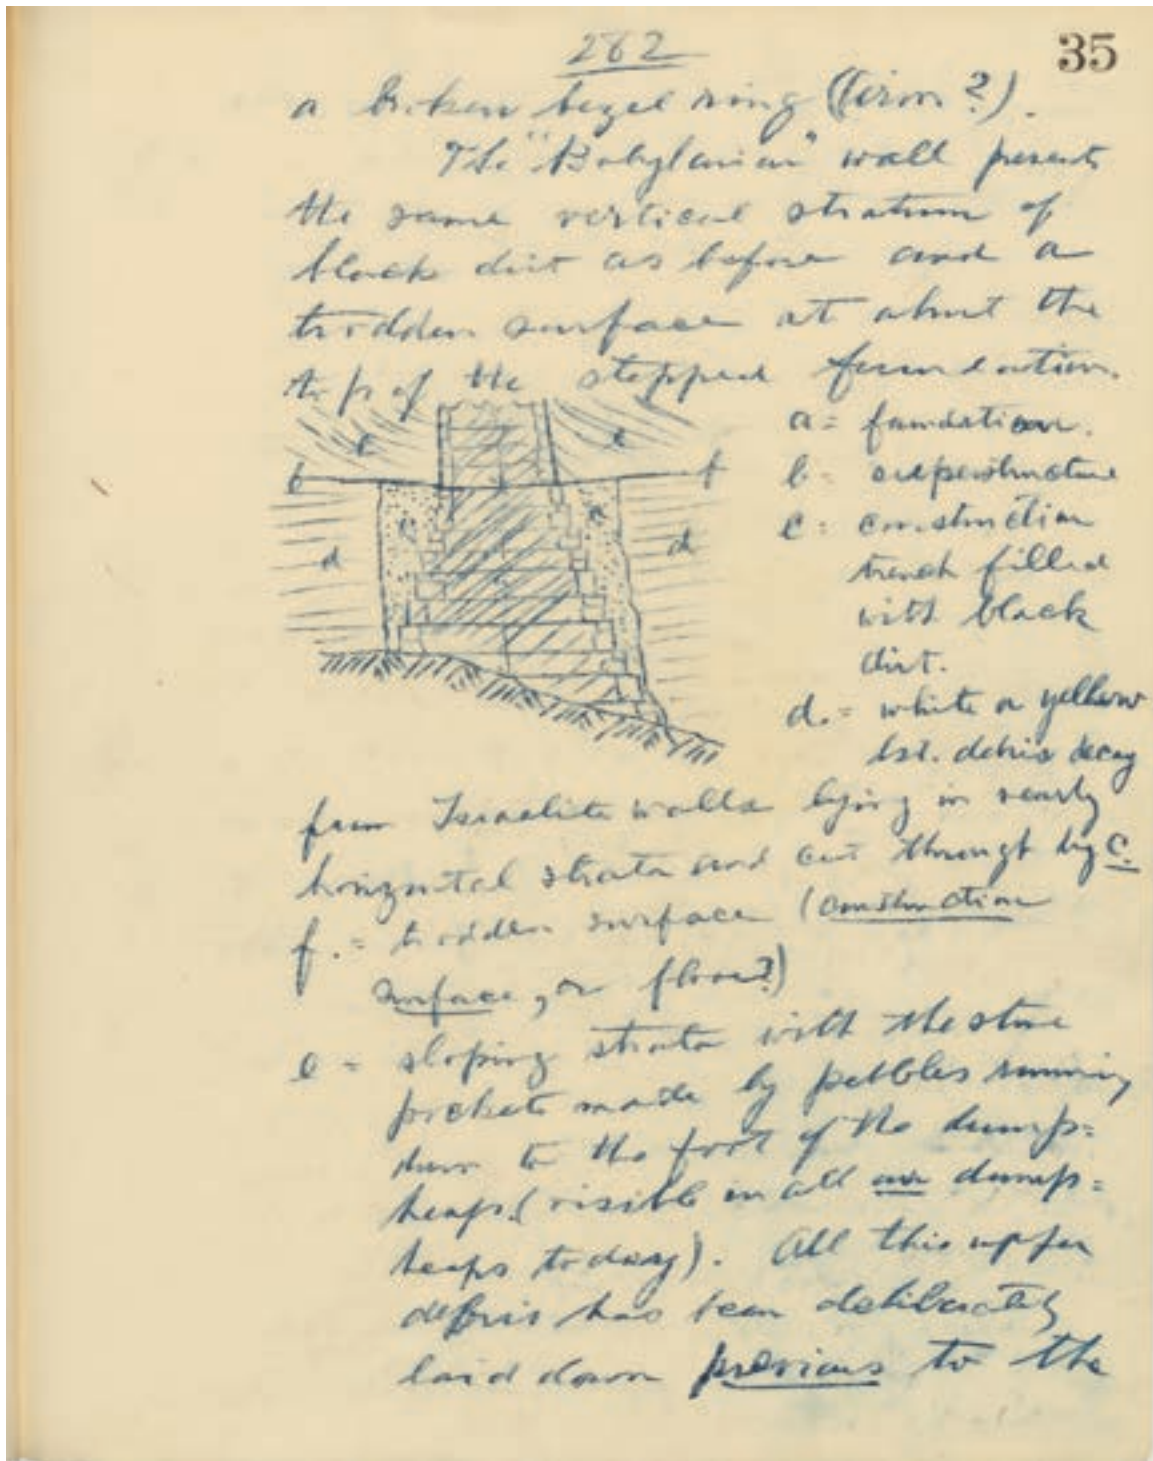 282
35
a broken bezel ring (iron?).
The "Babylonian" wall presents
the same vertical stratum of
black dirt as before and a
trodden surface at about the
top of the stepped foundation.
a = foundation.
b = superstructure
c = construction
trench filled
with black
dirt.
d. = white or yellow
lst. debris decay
e
e
f
f
c
c
d
d
from Israelite walls lying in nearly
horizontal strata and cut through by c.
f. = trodden surface (construction
surface, or floor?)
e = sloping strata with the stone
pockets made by pebbles running
down to the foot of the dump-
heaps (visible in all our dump-
heaps today). All this upper
debris has been deliberately
laid down previous to the